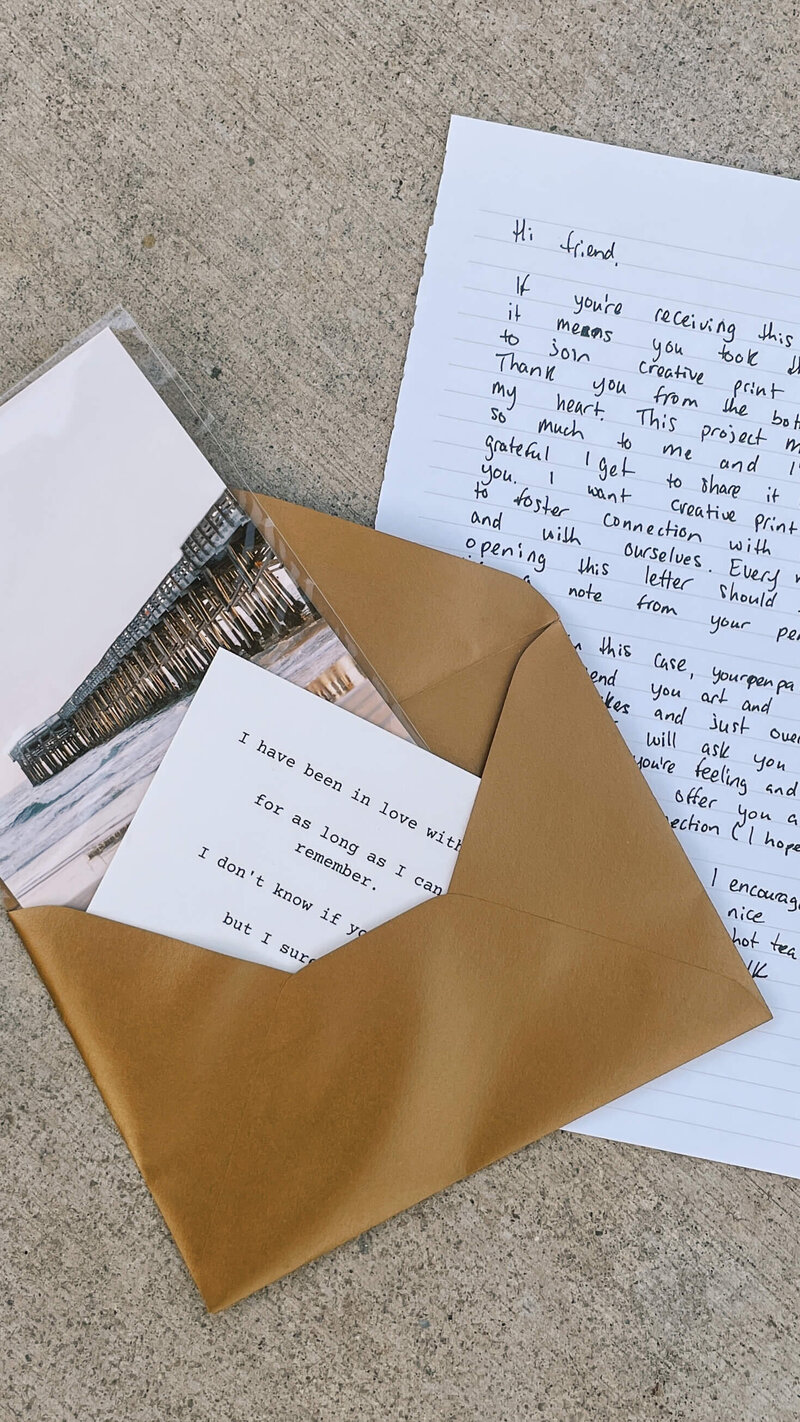 Hi friend.
If you're receiving this
it means you took
to join creative print
Thank you from the
my heart. This project
so much to me and
grateful I get to share it
you. I want creative print
to foster connection with
and with ourselves. Every
opening this letter should
a note from your
this case, your penpa
end you art and
and just over
will ask you
you're feeling and
offer you a
ection (I hope
I encourag
nice
hot tea
I have been in love with
for as long as I can
remember.
I don't know if yo
but I sure